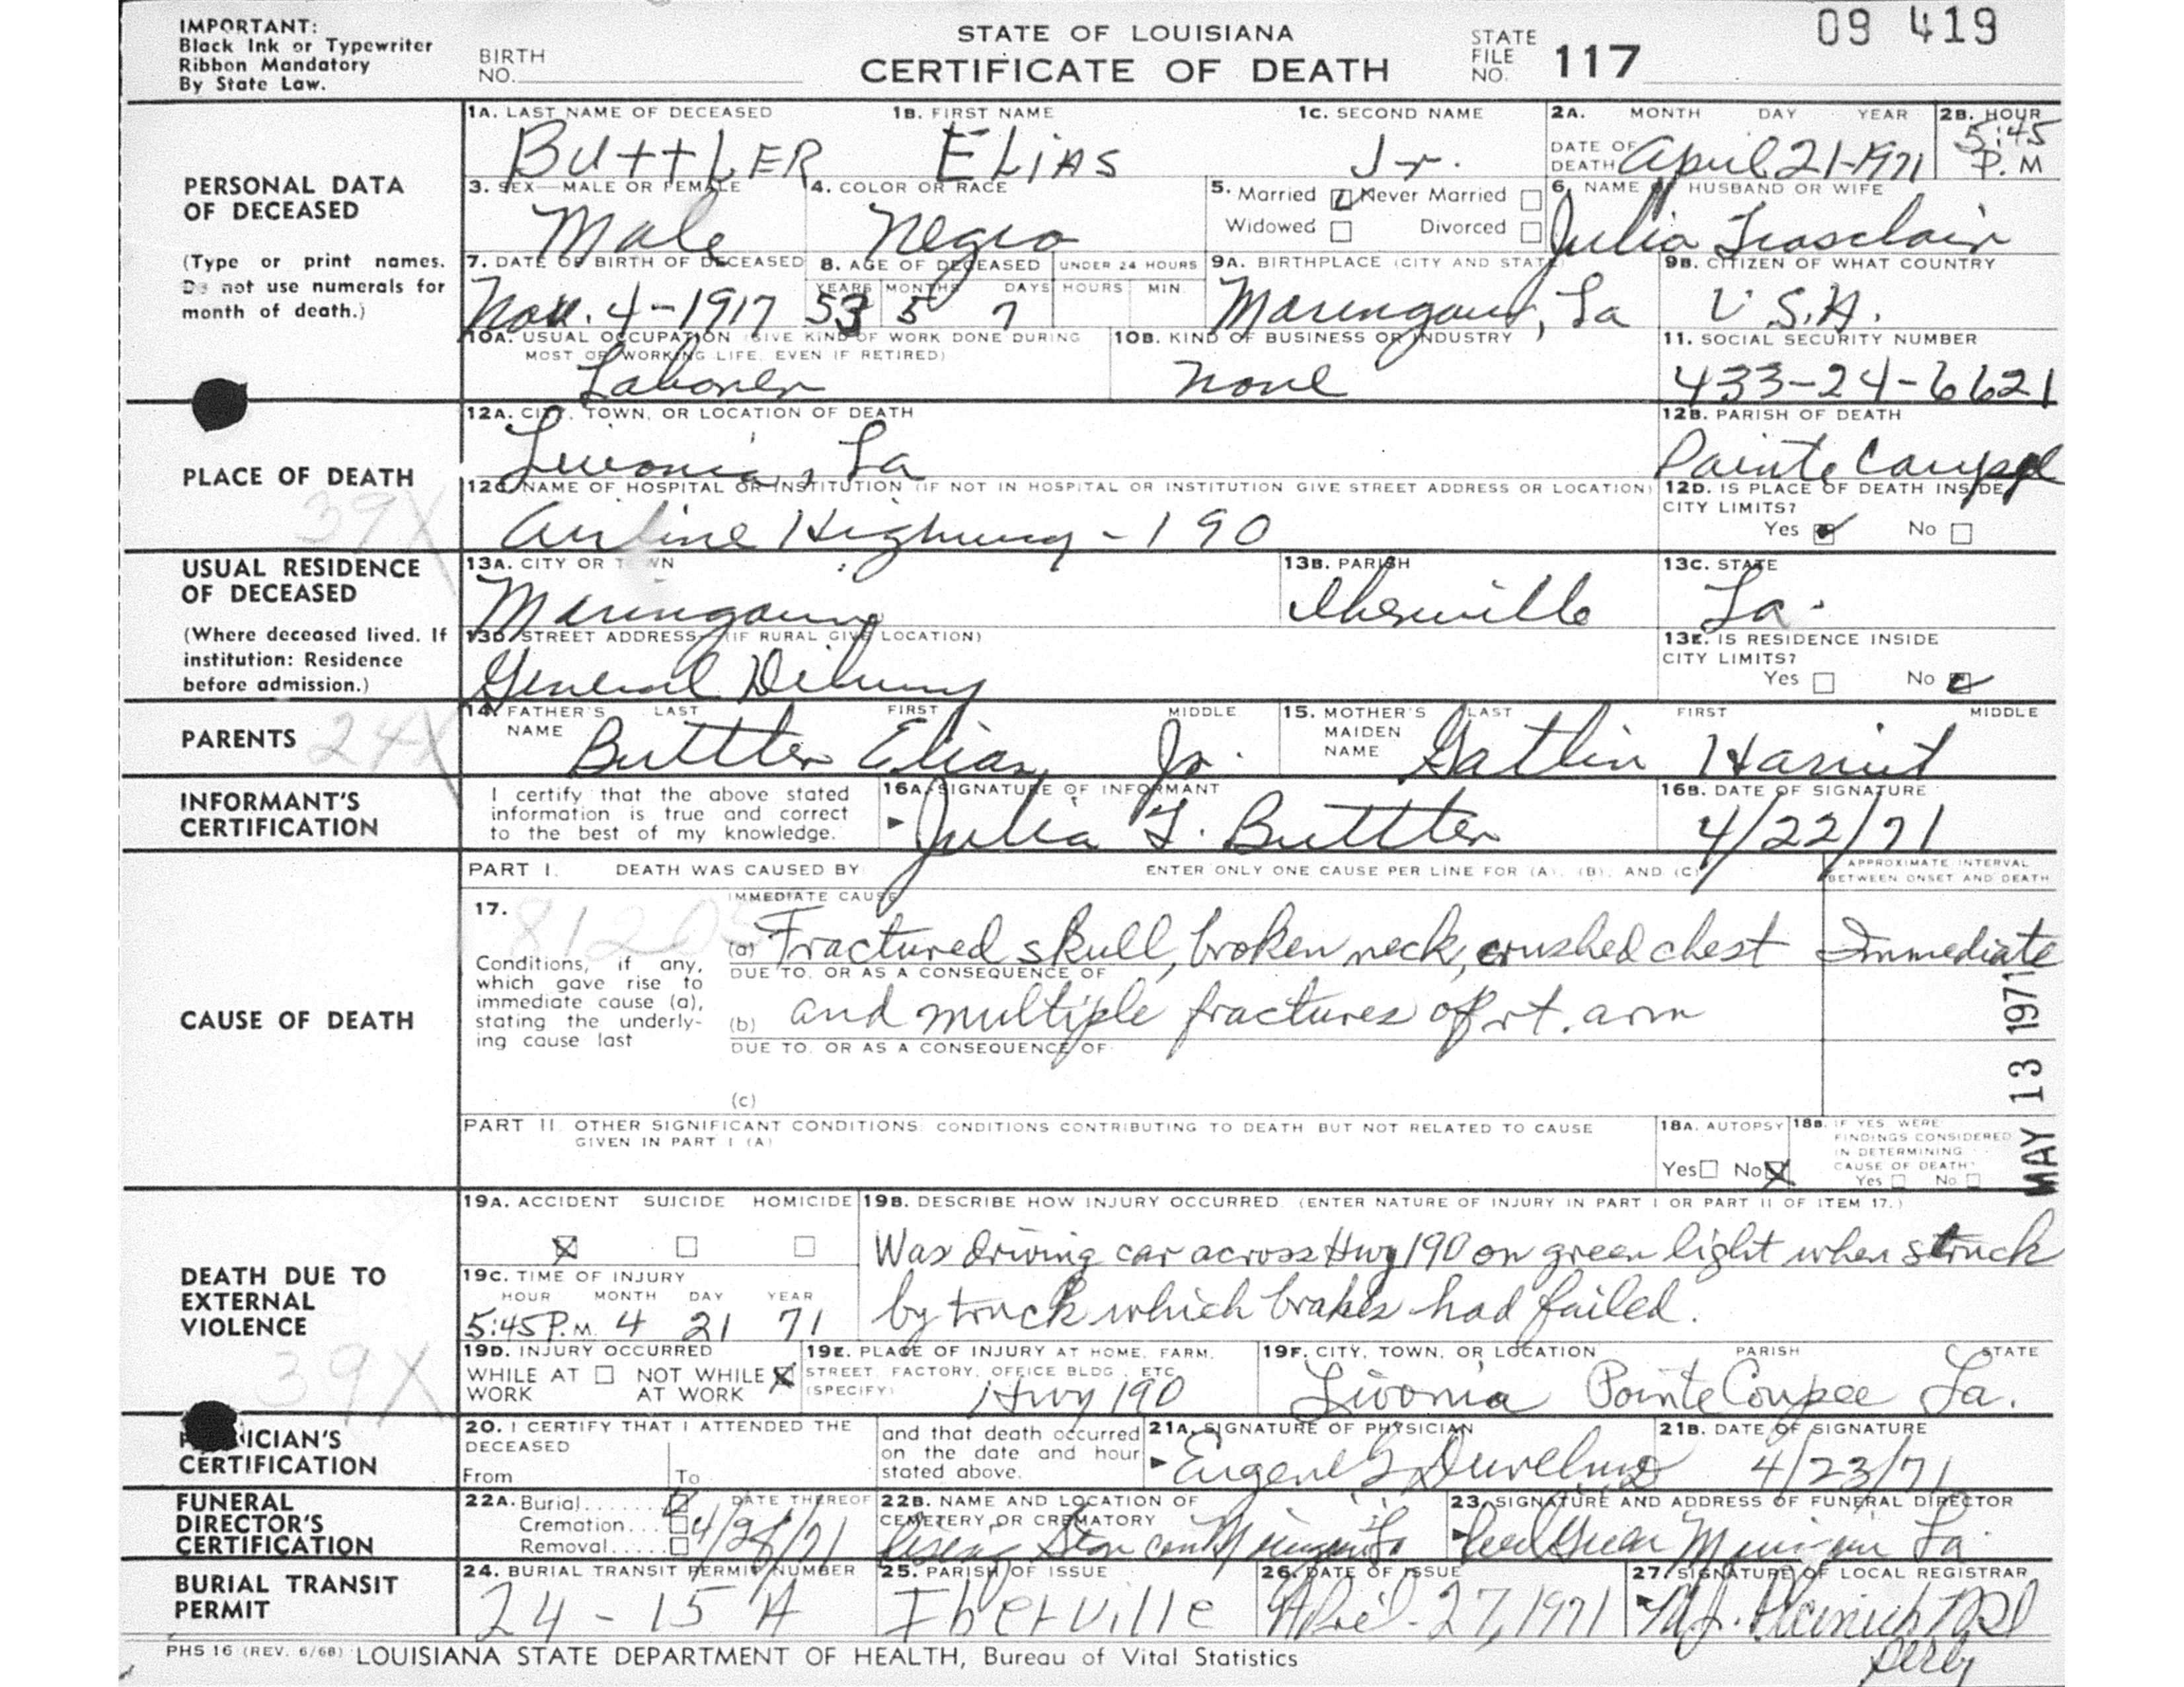 IMPORTANT:
Black Ink or Typewriter
Ribbon Mandatory
By State Law.
BIRTH
NO.
STATE OF LOUISIANA
CERTIFICATE OF DEATH
STATE
FILE
NO. 117
09 419
PERSONAL DATA
OF DECEASED
(Type or print names.
Do not use numerals for
month of death.)
1A. LAST NAME OF DECEASED 1B. FIRST NAME 1C. SECOND NAME
BUttLER ELiAS Jr.
2A. MONTH DAY YEAR
DATE OF
DEATH April 21-1971
2B. HOUR
5:45
P.M
3. SEX—MALE OR FEMALE
Male
4. COLOR OR RACE
Negro
5. Married Never Married
Widowed Divorced
6. NAME OF HUSBAND OR WIFE
Julia
7. DATE OF BIRTH OF DECEASED
Nov. 4-1917
8. AGE OF DECEASED UNDER 24 HOURS
YEARS MONTHS DAYS HOURS MIN.
53 5 7
9A. BIRTHPLACE (CITY AND STATE)
Maringouin, La
9B. CITIZEN OF WHAT COUNTRY
U.S.A.
10A. USUAL OCCUPATION (GIVE KIND OF WORK DONE DURING
MOST OF WORKING LIFE, EVEN IF RETIRED)
Laborer
10B. KIND OF BUSINESS OR INDUSTRY
none
11. SOCIAL SECURITY NUMBER
433-24-6621
PLACE OF DEATH
39X
12A. CITY, TOWN, OR LOCATION OF DEATH
Livonia, La
12B. PARISH OF DEATH
Pointe Coupee
12C. NAME OF HOSPITAL OR INSTITUTION (IF NOT IN HOSPITAL OR INSTITUTION GIVE STREET ADDRESS OR LOCATION)
Airline Highway - 190
12D. IS PLACE OF DEATH INSIDE
CITY LIMITS?
Yes No
USUAL RESIDENCE
OF DECEASED
(Where deceased lived. If
institution: Residence
before admission.)
13A. CITY OR TOWN
Maringouin
13B. PARISH
Iberville
13C. STATE
La.
13D. STREET ADDRESS (IF RURAL GIVE LOCATION)
General Delivery
13E. IS RESIDENCE INSIDE
CITY LIMITS?
Yes No
PARENTS
24X
14. FATHER'S LAST FIRST MIDDLE
NAME Buttler Elias, Jr.
15. MOTHER'S LAST FIRST MIDDLE
MAIDEN
NAME Gatlin Harriet
INFORMANT'S
CERTIFICATION
I certify that the above stated
information is true and correct
to the best of my knowledge.
16A. SIGNATURE OF INFORMANT
Julia T. Buttler
16B. DATE OF SIGNATURE
4/22/71
CAUSE OF DEATH
PART I. DEATH WAS CAUSED BY: ENTER ONLY ONE CAUSE PER LINE FOR (A), (B), AND (C)
APPROXIMATE INTERVAL
BETWEEN ONSET AND DEATH
17.
Conditions, if any,
which gave rise to
immediate cause (a),
stating the underly-
ing cause last
IMMEDIATE CAUSE
(a) Fractured skull, broken neck, crushed chest Immediate
DUE TO, OR AS A CONSEQUENCE OF
(b) and multiple fractures of rt. arm
DUE TO, OR AS A CONSEQUENCE OF
(c)
MAY 13 1971
PART II. OTHER SIGNIFICANT CONDITIONS: CONDITIONS CONTRIBUTING TO DEATH BUT NOT RELATED TO CAUSE
GIVEN IN PART I (A)
18A. AUTOPSY
Yes No
18B. IF YES WERE
FINDINGS CONSIDERED
IN DETERMINING
CAUSE OF DEATH?
Yes No
DEATH DUE TO
EXTERNAL
VIOLENCE
39X
19A. ACCIDENT SUICIDE HOMICIDE
19B. DESCRIBE HOW INJURY OCCURRED. (ENTER NATURE OF INJURY IN PART I OR PART II OF ITEM 17.)
Was driving car across Hwy 190 on green light when struck
by truck which brakes had failed.
19C. TIME OF INJURY
HOUR MONTH DAY YEAR
5:45 P.M. 4 21 71
19D. INJURY OCCURRED
WHILE AT NOT WHILE
WORK AT WORK
19E. PLACE OF INJURY AT HOME, FARM,
STREET, FACTORY, OFFICE BLDG., ETC.
(SPECIFY) Hwy 190
19F. CITY, TOWN, OR LOCATION PARISH STATE
Livonia Pointe Coupee La.
PHYSICIAN'S
CERTIFICATION
20. I CERTIFY THAT I ATTENDED THE
DECEASED
From To
and that death occurred
on the date and hour
stated above.
21A. SIGNATURE OF PHYSICIAN
Eugene
21B. DATE OF SIGNATURE
4/23/71
FUNERAL
DIRECTOR'S
CERTIFICATION
22A. Burial DATE THEREOF
Cremation
Removal
22B. NAME AND LOCATION OF
CEMETERY OR CREMATORY
Rising Star
23. SIGNATURE AND ADDRESS OF FUNERAL DIRECTOR
La
BURIAL TRANSIT
PERMIT
24. BURIAL TRANSIT PERMIT NUMBER
24-15 A
25. PARISH OF ISSUE
Iberville
26. DATE OF ISSUE
April-27, 1971
27. SIGNATURE OF LOCAL REGISTRAR
PHS 16 (REV. 6/68) LOUISIANA STATE DEPARTMENT OF HEALTH, Bureau of Vital Statistics